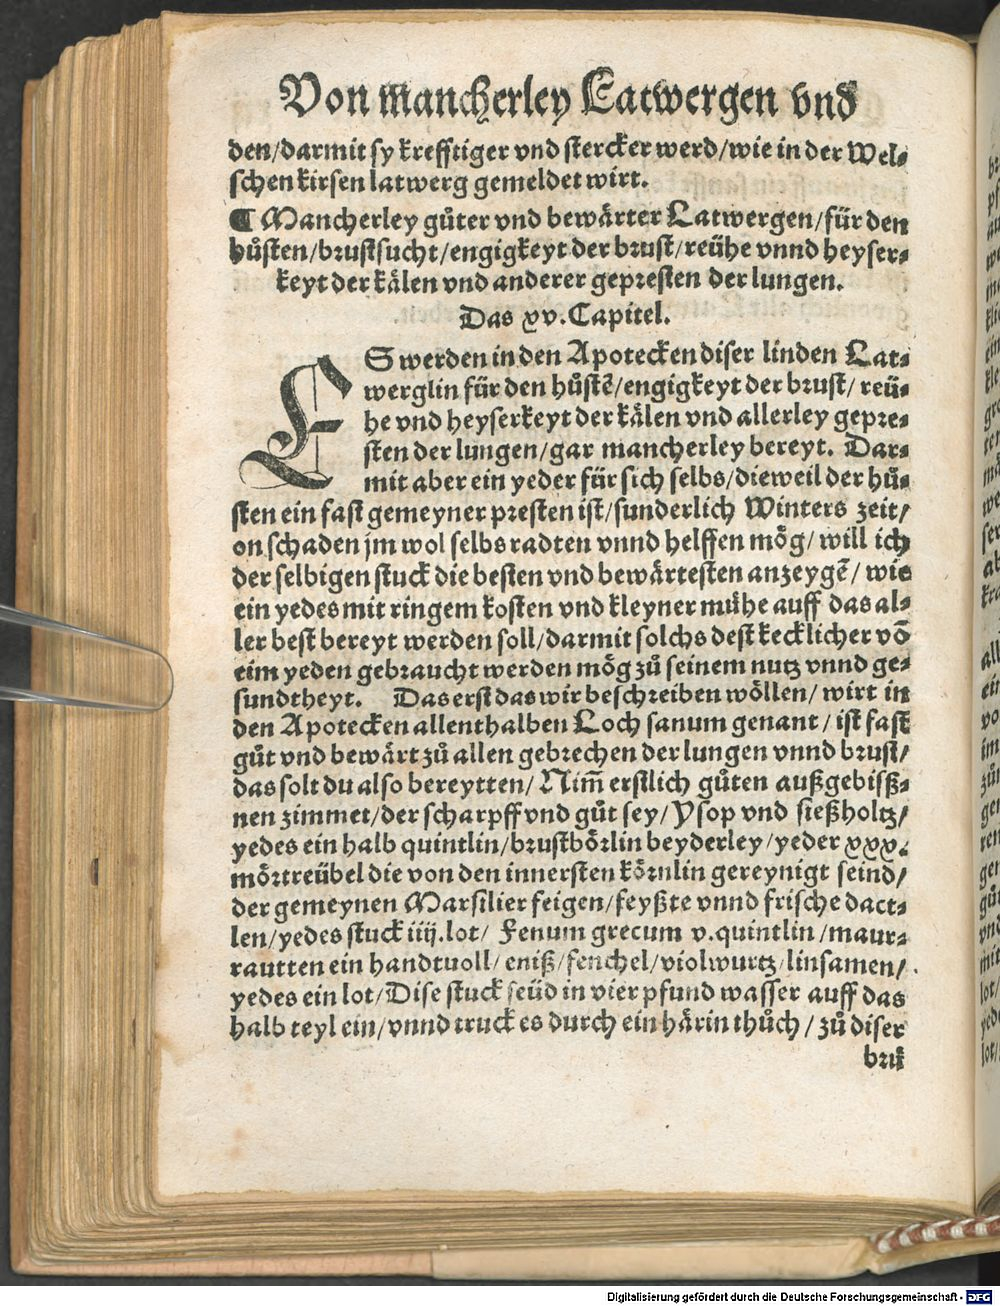 Von mancherley Latwergen vnd
den/darmit sy krefftiger vnd stercker werd/wie in der Wel⸗
schen kirsen latwerg gemeldet wirt.
¶ Mancherley gůter vnd bewärter Latwergen/für den
hůsten/brustsucht/engigkeyt der brust/reühe vnnd heyser⸗
keyt der kälen vnd anderer gepresten der lungen.
Das xv. Capitel.
ES werden in den Apotecken diser linden Lat⸗
werglin für den hůstē/engigkeyt der brust/ reü⸗
he vnd heyserkeyt der kälen vnd allerley gepre⸗
sten der lungen/gar mancherley bereyt. Dar⸗
mit aber ein yeder für sich selbs/dieweil der hů⸗
sten ein fast gemeyner presten ist/sunderlich Winters zeit/
on schaden jm wol selbs radten vnnd helffen mög/ will ich
der selbigen stuck die besten vnd bewärtesten anzeygē/ wie
ein yedes mit ringem kosten vnd kleyner mühe auff das al⸗
ler best bereyt werden soll/darmit solchs dest kecklicher vō
eim yeden gebraucht werden mög zů seinem nutz vnnd ge⸗
sundtheyt. Das erst das wir beschreiben wöllen/ wirt in
den Apotecken allenthalben Loch sanum genant/ ist fast
gůt vnd bewärt zů allen gebrechen der lungen vnnd brust/
das solt du also bereytten/ Nim̄ erstlich gůten außgebisß⸗
nen zimmet/der scharpff vnd gůt sey/ Ysop vnd sießholtz/
yedes ein halb quintlin/brustbörlin beyderley/yeder xxx.
mörtreübel die von den innersten körnlin gereynigt seind/
der gemeynen Marsilier feigen/feyßte vnnd frische dact⸗
len/yedes stuck iiij.lot/ Fenum grecum v.quintlin/maur⸗
rautten ein handtuoll/ eniß/fenchel/violwurtz/linsamen/
yedes ein lot/Dise stuck seüd in vier pfund wasser auff das
halb teyl ein/vnnd truck es durch ein härin thůch/ zů diser
brü
Digitalisierung gefördert durch die Deutsche Forschungsgemeinschaft - DFG